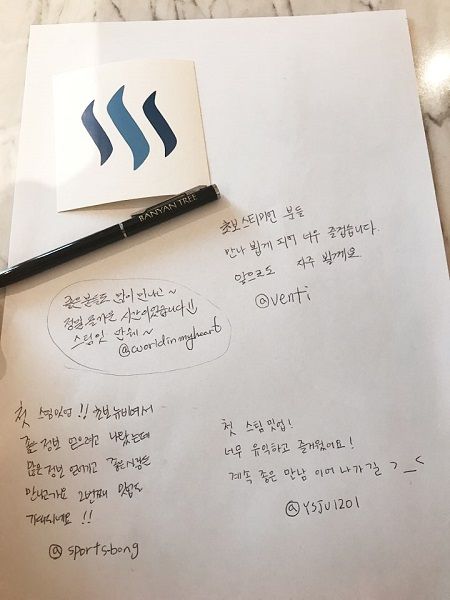 BANYAN TREE
초보 스티미언 분들
만나 뵙게 되어 너무 즐겁습니다.
앞으로도 자주 뵐게요
@venti
좋은분들도 많이 만나고~
정말 즐거운 시간이었습니다!!
스팀잇 만세~
@worldinmyheart
첫 스팀밋업!! 초보뉴비여서
좋은 정보 얻으려고 나왔는데
많은 정보 얻어가고 좋은사람들
만나고가요 2번째 밋업도
기대되네요 !!
@sportsbong
첫 스팀 밋업!
너무 유익하고 즐거웠어요!
계속 좋은 만남 이어 나가길 >_<
@ysju1201